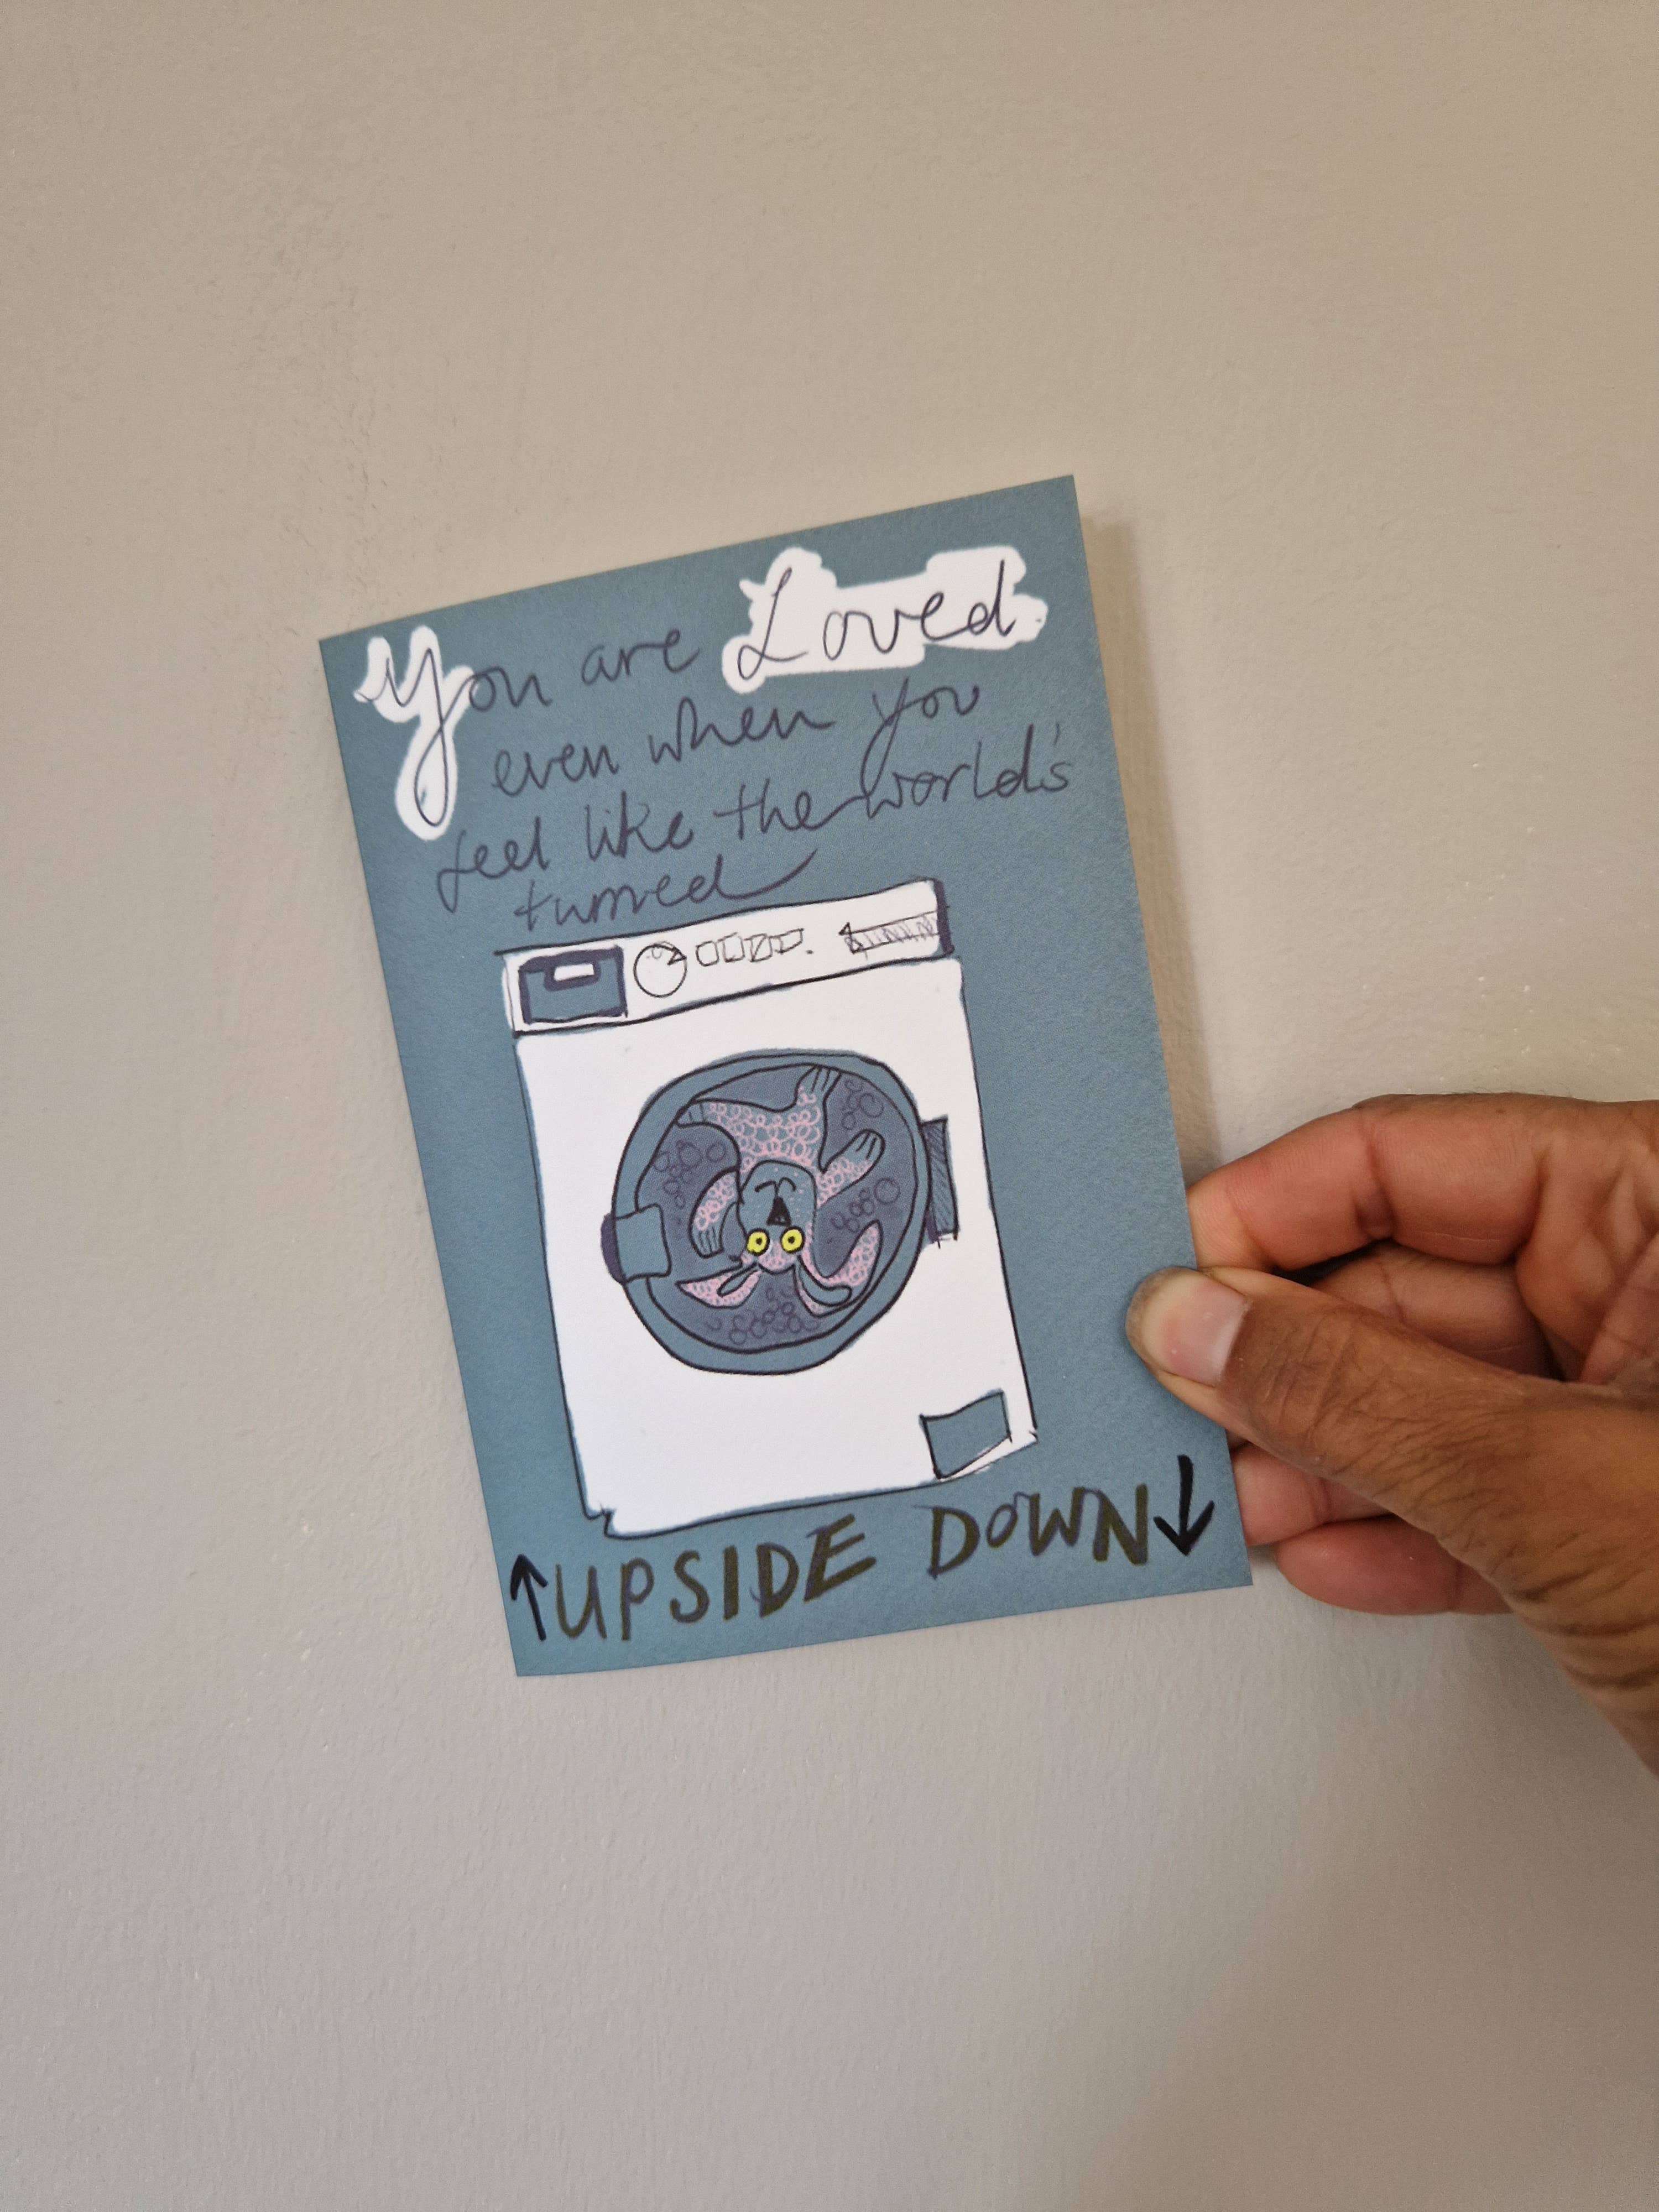 You are Loved.
even when you
feel like the world's
turned
↑UPSIDE DOWN↓